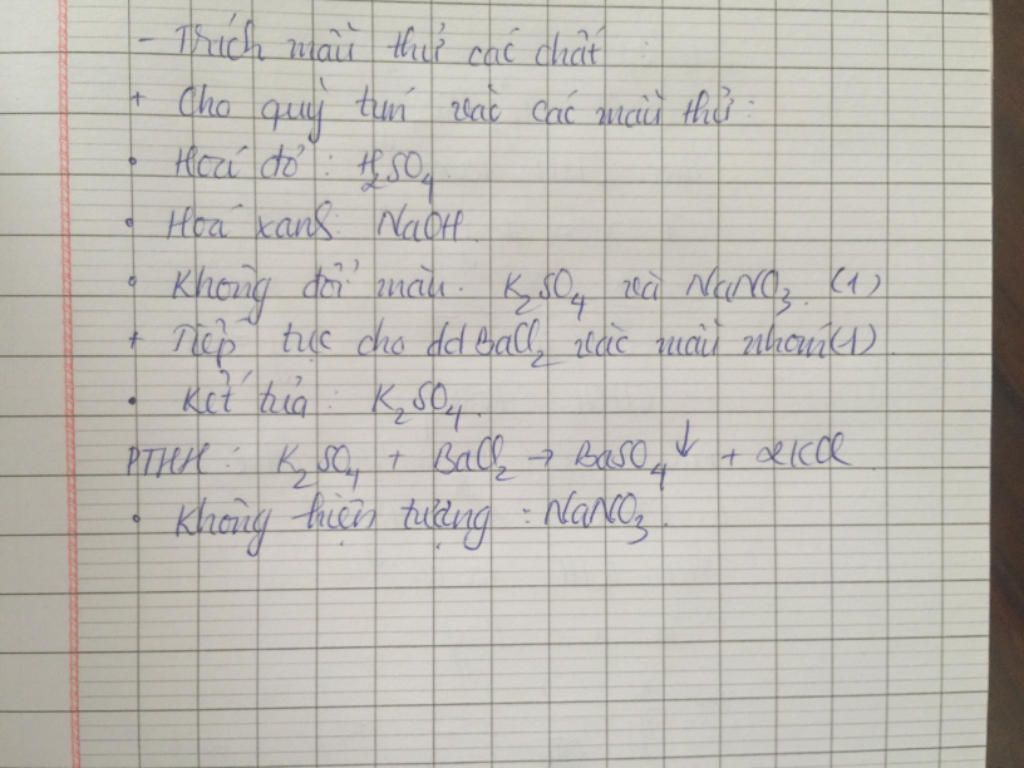 - Trích mẫu thử các chất :
+ Cho quỳ tím vào các mẫu thử :
• Hoá đỏ : H₂SO₄
• Hoá xanh : NaOH
• Không đổi màu : K₂SO₄ và NaNO₃ (1)
+ Tiếp tục cho dd BaCl₂ vào mẫu nhóm (1)
• Kết tủa : K₂SO₄
PTHH : K₂SO₄ + BaCl₂ → BaSO₄↓ + 2KCl
• Không hiện tượng : NaNO₃